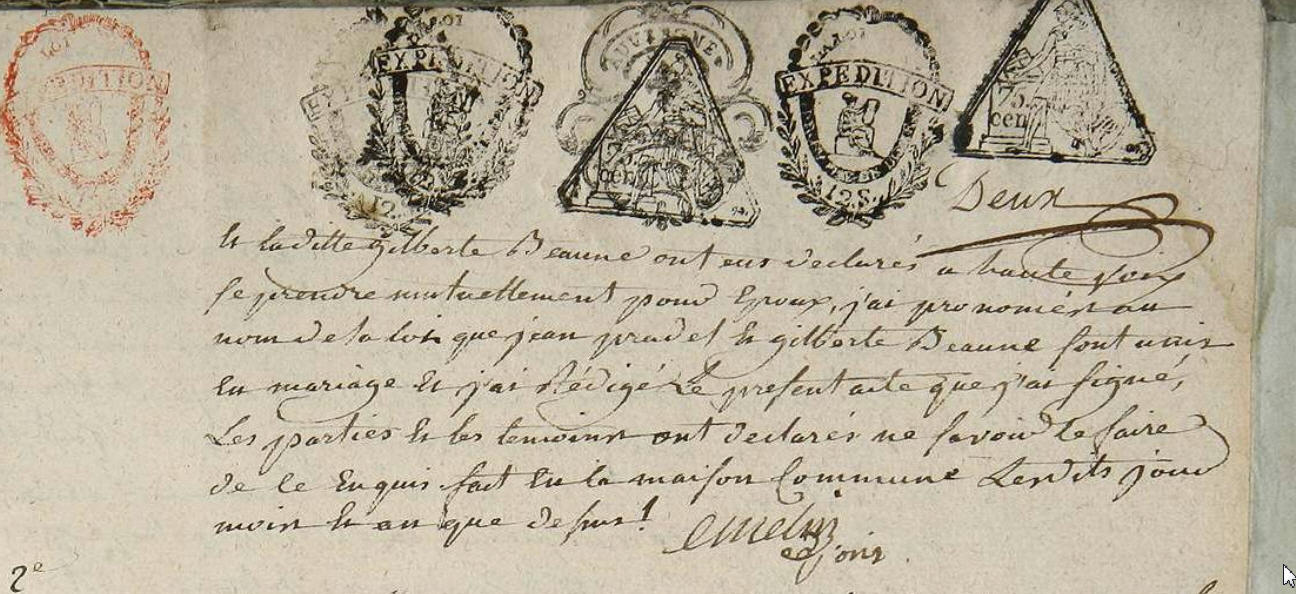 EXPEDITION
EXPEDITION
12.
75.
cen
EXPEDITION
12S.
75.
cen
Deux
Et laditte gilberte Beaune ont eus declarés a haute voix
se prendre mutuellement pour Epoux, j'ai prononcés au
nom de la loi que jean pradel Et gilberte Beaune sont unis
En mariage Et j'ai Rédigé Le present acte que j'ai signé,
Les parties Et les temoins ont declarés ne savoir le faire
de ce Enquis fait En la maison Commune Lesdits jour
mois Et an que desus!
2e